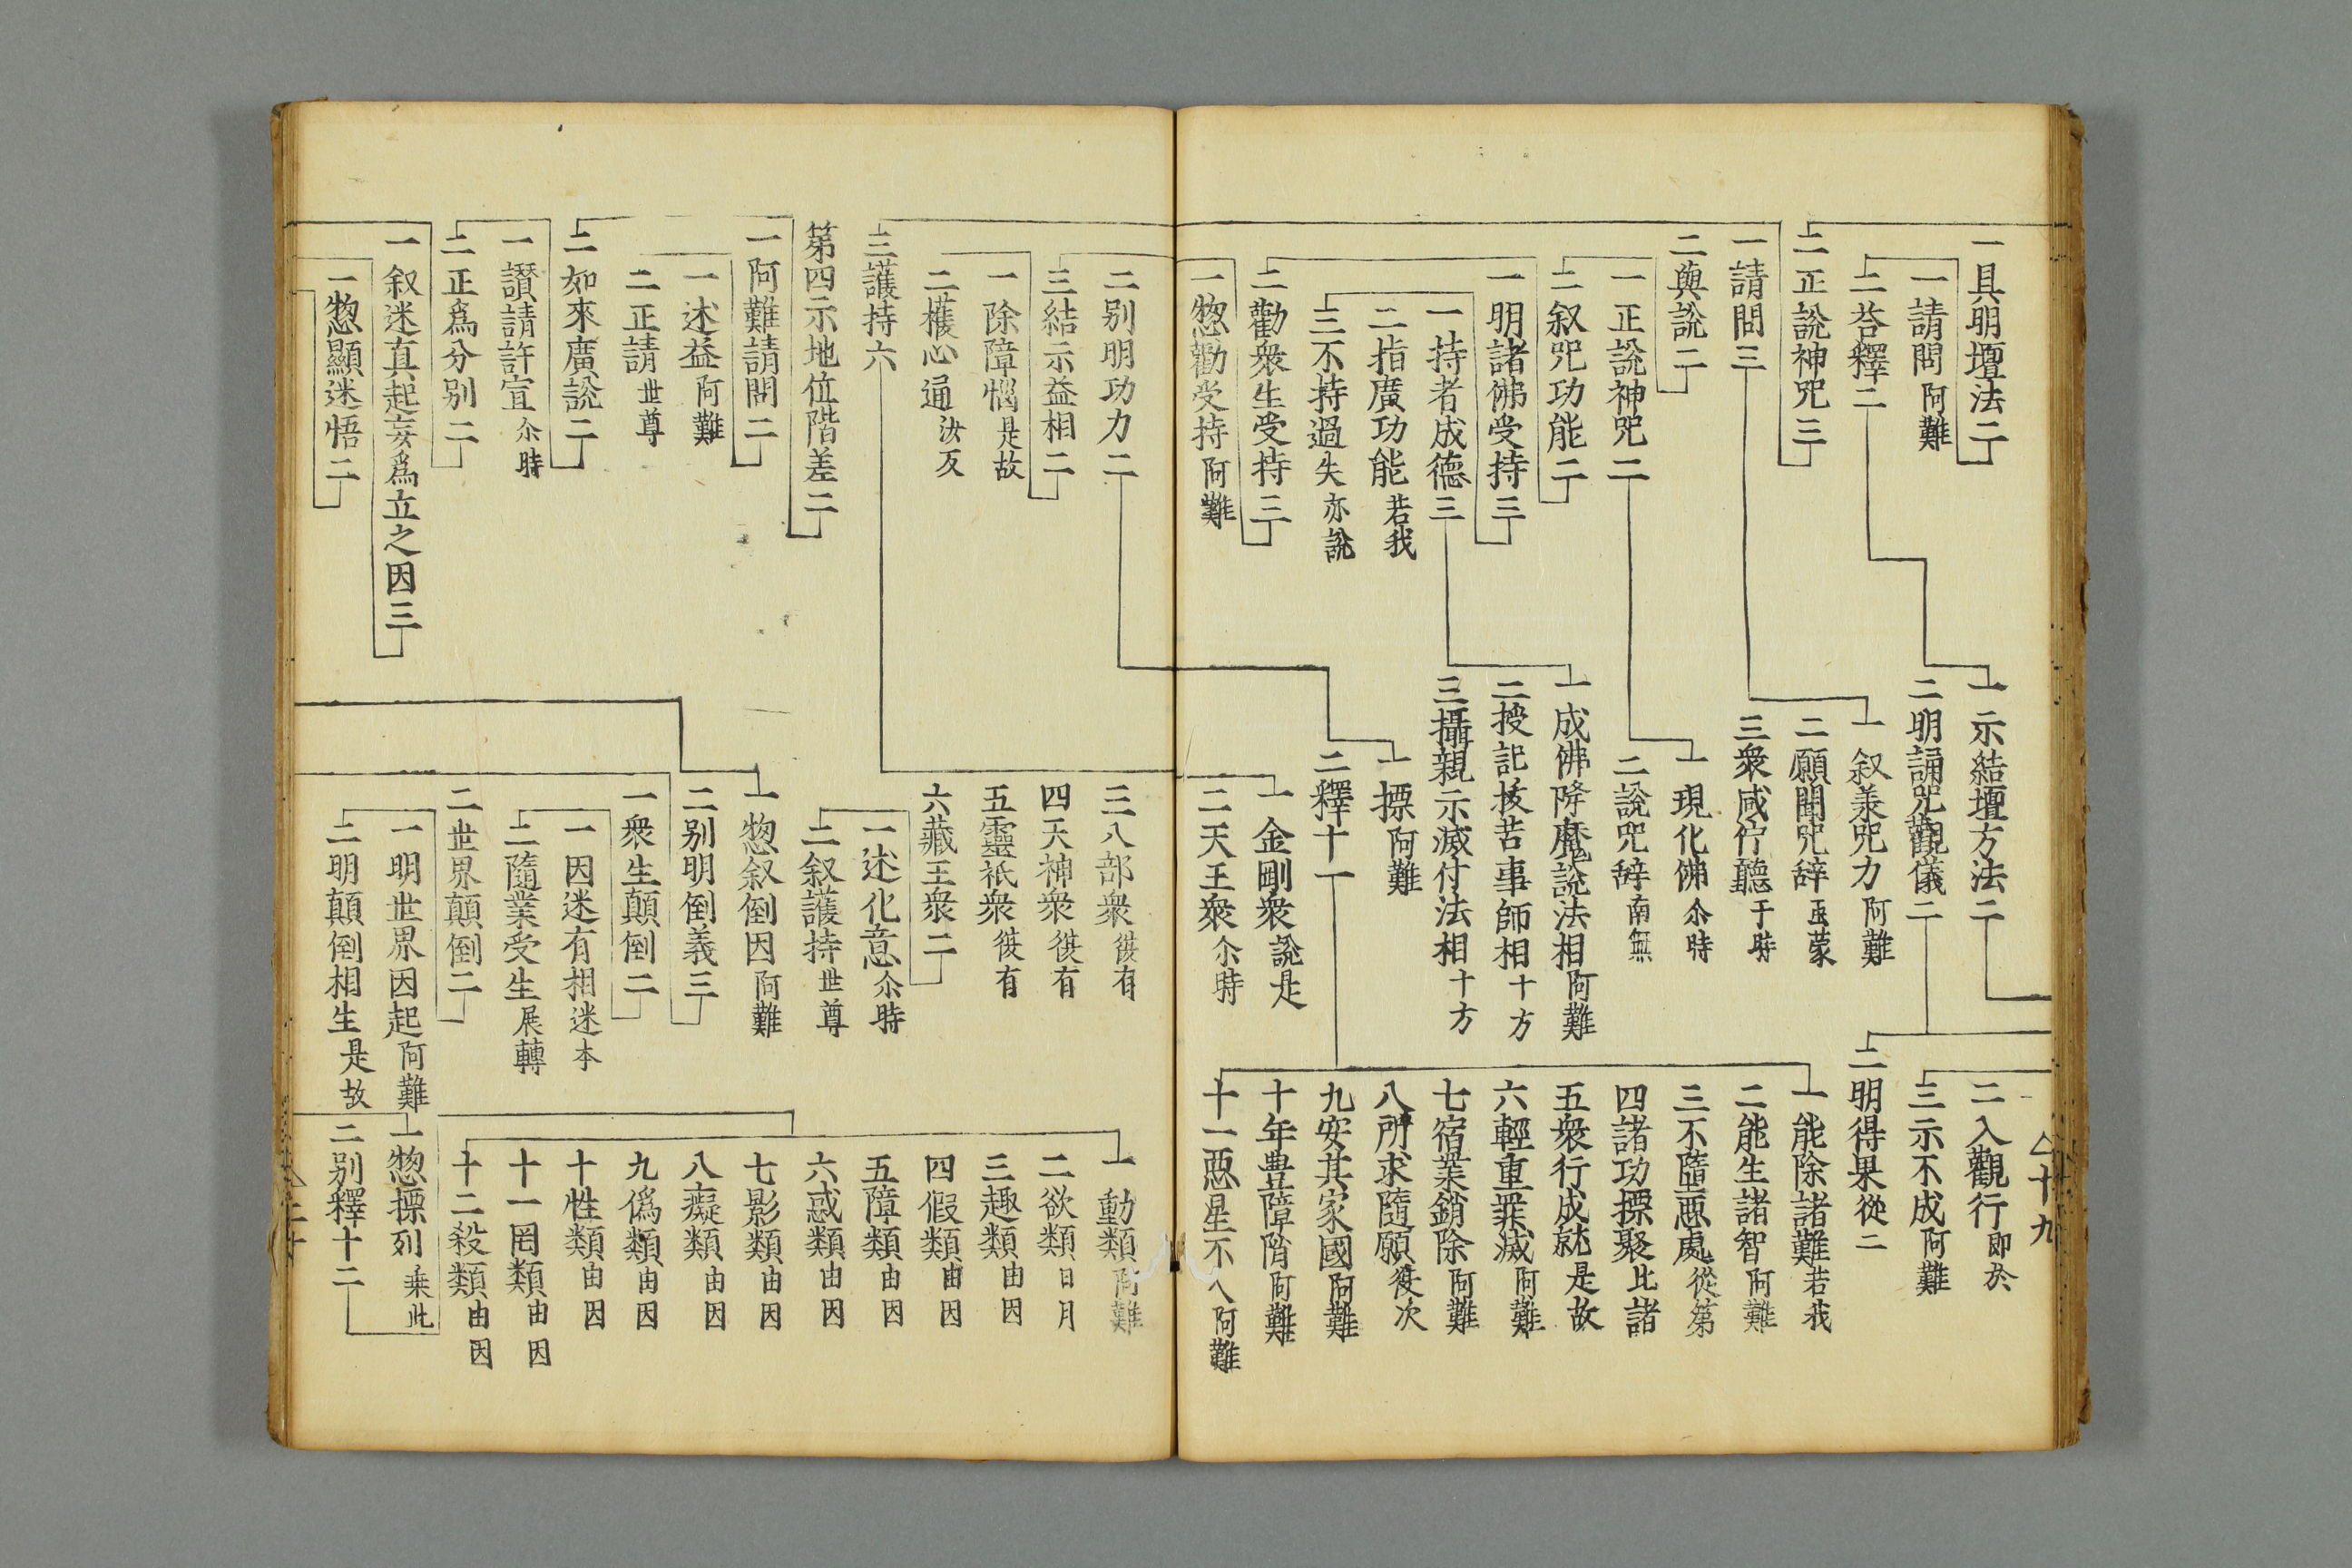 一具明壇法二
一請問 阿難
二荅釋二
二正說神咒三
一請問三
二與說二
一正說神咒二
二叙咒功能二
一明諸佛受持三
一持者成德三
二指廣功能 若我
三不持過失 亦說
二勸衆生受持三
一緫勸受持 阿難
一示結壇方法二
二明誦咒觀儀二
一叙羕咒力 阿難
二願聞咒辝 再蒙
三衆咸佇聽 于時
一現化佛 尒時
二說咒辝 南無
一成佛降魔說法相 阿難
二授記拔苦事師相 十方
三攝親示滅付法相 十方
一摽 阿難
二釋十一
一金剛衆 說是
二天王衆 尒時
二入觀行 即於
三示不成 阿難
二明得果 從二
一能除諸難 若我
二能生諸智 阿難
三不墮惡處 從第
四諸功摽聚 比諸
五衆行成就 是故
六輕重罪滅 阿難
七宿業銷除 阿難
八所求隨願 復次
九安其家國 阿難
十年豊障消 阿難
十一惡星不入 阿難
△十九
二别明功力二
三結示益相二
一除障惱 是故
二獲心通 汝及
三護持六
第四示地位階差二
一阿難請問二
一述益 阿難
二正請 世尊
二如來廣說二
一讚請許宣 尒時
二正爲分别二
一叙迷真起妄爲立之因三
一緫顯迷悟二
三八部衆 復有
四天神衆 復有
五靈祇衆 復有
六藏王衆二
一述化意 尒時
二叙護持 世尊
一緫叙倒因 阿難
二别明倒義三
一衆生顛倒二
一因迷有相 迷本
二隨業受生 展轉
二世界顛倒二
一明世界因起 阿難
二明顛倒相生 是故
一動類 阿難
二欲類 日月
三趣類 由因
四假類 由因
五障類 由因
六惑類 由因
七影類 由因
八癡類 由因
九僞類 由因
十性類 由因
十一罔類 由因
十二殺類 由因
一緫摽列 乗此
二别釋十二